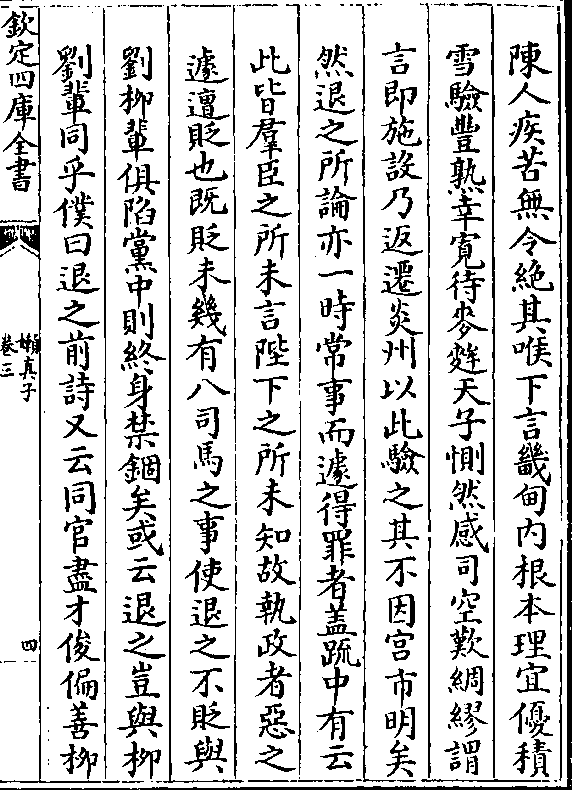 陳人疾苦無令絶其喉下言畿甸内根本理宜優積
雪驗豐熟幸寛待蠶麰天子惻然感司空歎綢繆謂
言即施設乃返遷炎州以此驗之其不因宫市明矣
然退之所論亦一時常事而遽得罪者蓋疏中有云
此皆羣臣之所未言陛下之所未知故執政者惡之
遽遭貶也既貶未幾有八司馬之事使退之不貶與
劉柳輩俱陷黨中則終身禁錮矣或云退之豈與柳
劉輩同乎僕曰退之前詩又云同官盡才俊偏善柳
欽定四庫全書
嬾真子
卷三
四